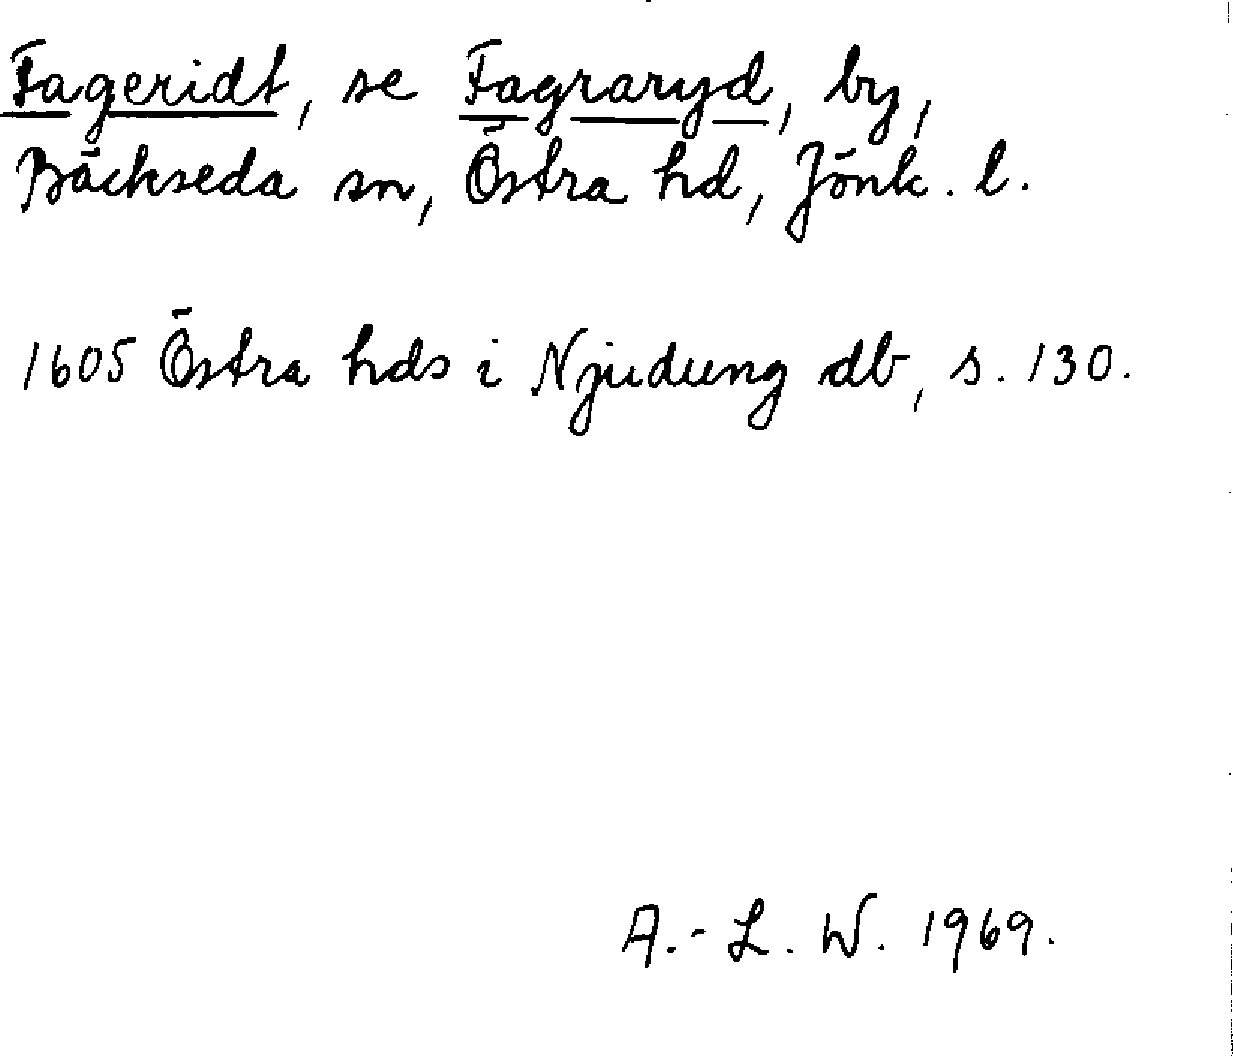 Fageridt, se Fagraryd, by,
Bäckseda sn, Östra hd, Jönk. l.
1605 Östra hds i Njudung db, s. 130.
A.-L. W. 1969.